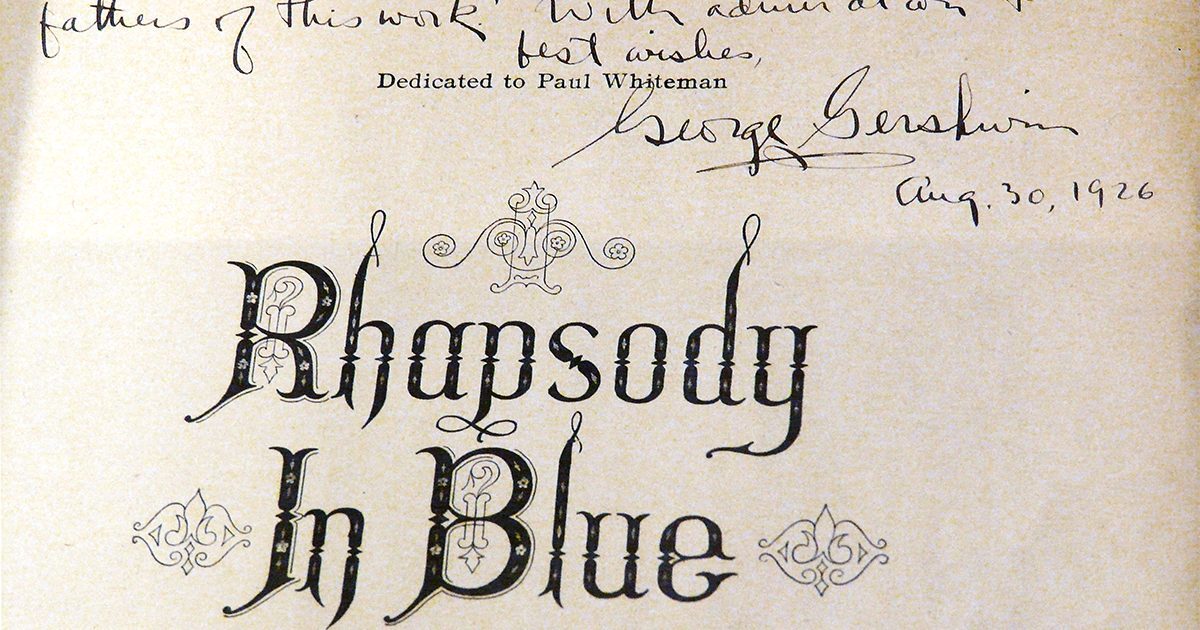 fathers of this work! With admiration &
best wishes,
Dedicated to Paul Whiteman
George Gershwin
Aug. 30, 1926
Rhapsody
In Blue